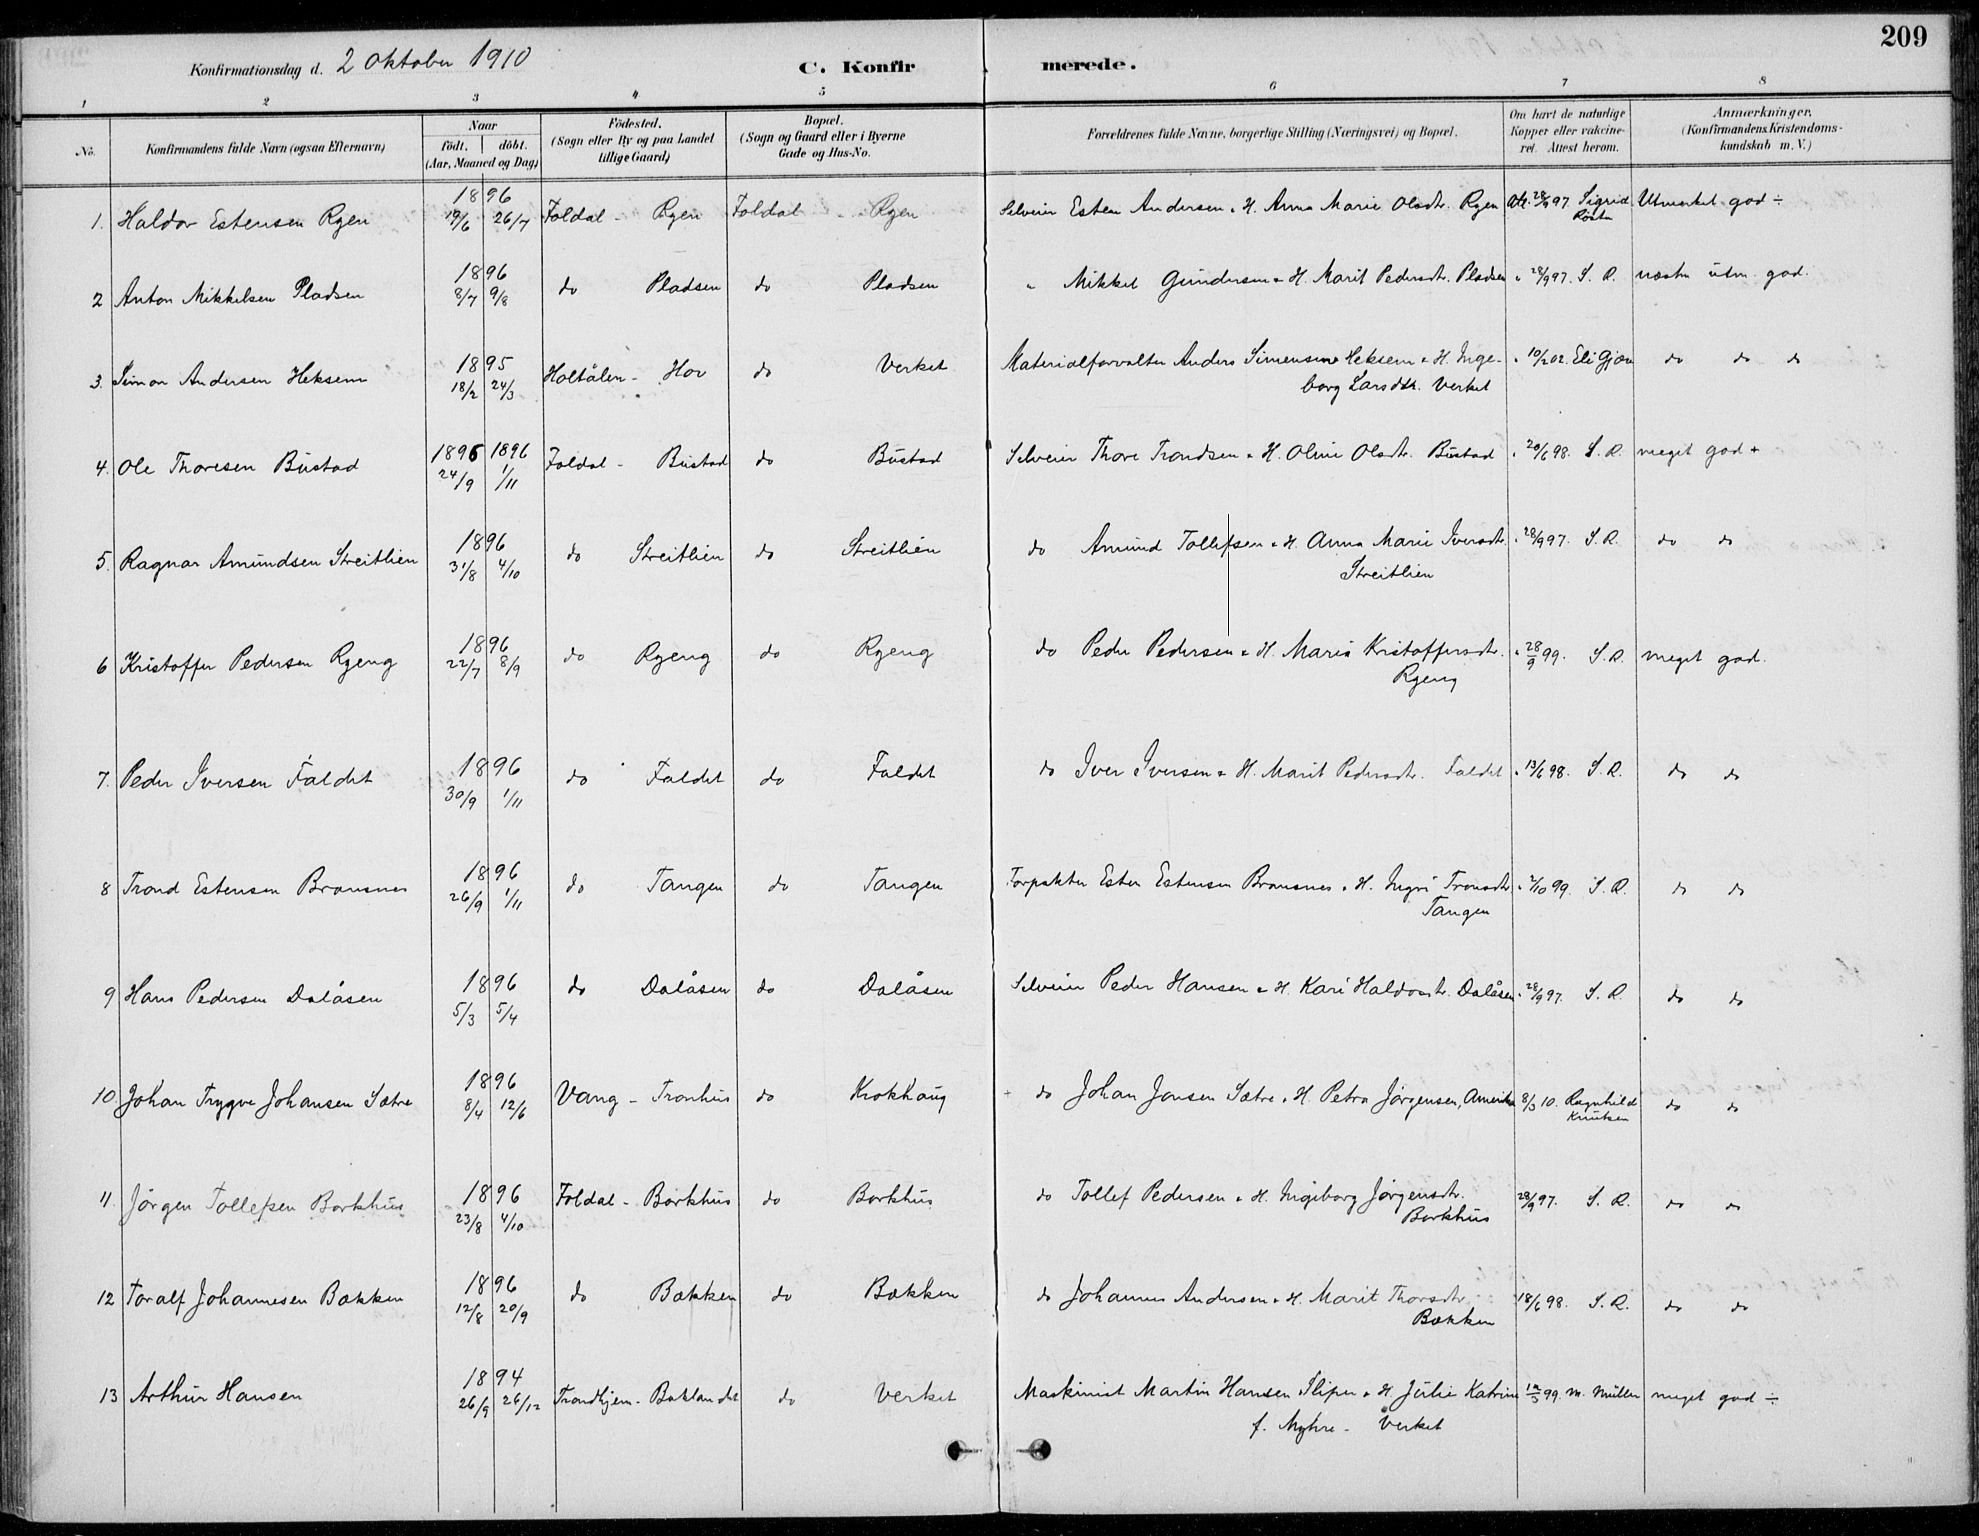 209
Konfirmationsdag d. 2 Oktober 1910 C. Konfirmerede.
1 2 3 4 5 6 7 8
No. Konfirmandens fulde Navn (ogsaa Efternavn) Naar født. døbt. (Aar, Maaned og Dag) Fødested. (Sogn eller By og paa Landet tillige Gaard) Bopæl. (Sogn og Gaard eller i Byerne Gade og Hus-No. Forældrenes fulde Navne, borgerlige Stilling (Næringsvei) og Bopæl. Om havt de naturlige Kopper eller vakcineret. Attest herom. Anmærkninger. (Konfirmandens Kristendomskundskab m. V.)
1. Haldor Estensen Ryen 1896 19/6 26/7 Foldal - Ryen Foldal - Ryen Selveier Esten Andersen & H. Anna Marie Olsdtr. Ryen Att. 28/9 97 Sigrid Røstn Utmerket god ÷
2 Anton Mikkelsen Pladsen 1896 8/7 9/8 do Pladsen do Pladsen " Mikkel Gundersen & H. Marit Pedersdtr. Pladsen " 28/9 97. S. R. næstn utm. god.
3. Simon Andersen Heksem 1895 18/2 24/3 Holtålen - Hov do Verket Materialforvalter Anders Simensen Heksem & H. Inge-
borg Larsdtr. Verket " 10/2 02. Eli Gjør do do do
4. Ole Thoresen Bustad 1896 1896 24/9 1/11 Foldal - Bustad do Bustad Selveier Thore Trondsen & H. Oline Olsdtr. Bustad " 20/6 98. S. R. meget god +
5. Ragnar Amundsen Streitlien 1896 31/8 4/10 do Streitlien do Streitlien do Amund Tollefsen & H. Anna Marie Iversdtr.
Streitlien " 28/9 97. S. R. do do
6 Kristoffer Pedersen Ryeng 1896 22/7 8/9 do Ryeng do Ryeng do Peder Pedersen & H. Maria Kristoffersdtr.
Ryeng " 28/9 99. S. R. meget god.
7. Peder Iversen Faldet 1896 30/9 1/11 do Faldet do Faldet do Iver Iversen & H. Marit Pedersdtr. Faldet " 13/6 98. S. R. do do
8 Trond Estensen Bransnes 1896 26/9 1/11 do Tangen do Tangen Forpakter Esten Estensen Bransnes & H. Ingri Tronsdtr.
Tangen " 2/10 99. S. R. do do
9 Hans Pedersen Dalåsen 1896 5/3 5/4 do Dalåsen do Dalåsen Selveier Peder Hansen & H. Kari Haldorsdtr. Dalåsen " 28/9 97. S. R. do do
10. Johan Trygve Johansen Sætre 1896 8/4 12/6 Vang - Tronhus do Krokhaug do Johan Jonsen Sætre & H. Petra Jørgensen, Amerika 8/3 10. Ragnhild Knutsen do do
11. Jørgen Tollefsen Borkhus 1896 23/8 4/10 Foldal - Borkhus do Borkhus do Tollef Pedersen & H. Ingeborg Jørgensdtr.
Borkhus 28/9 97. S. R. do do
12 Toralf Johannesen Bækken 1896 12/8 20/9 do Bækken do Bækken do Johannes Andersen & H. Marit Thorsdtr.
Bækken 18/6 98. S. R. do do
13 Arthur Hansen 1894 26/9 26/12 Trondhjem - Baklandet do Verket Maskinist Martin Hansen Sliper & H. Julie Katrine
f. Myhre - Verket 12/5 99. M. Müller meget god ÷